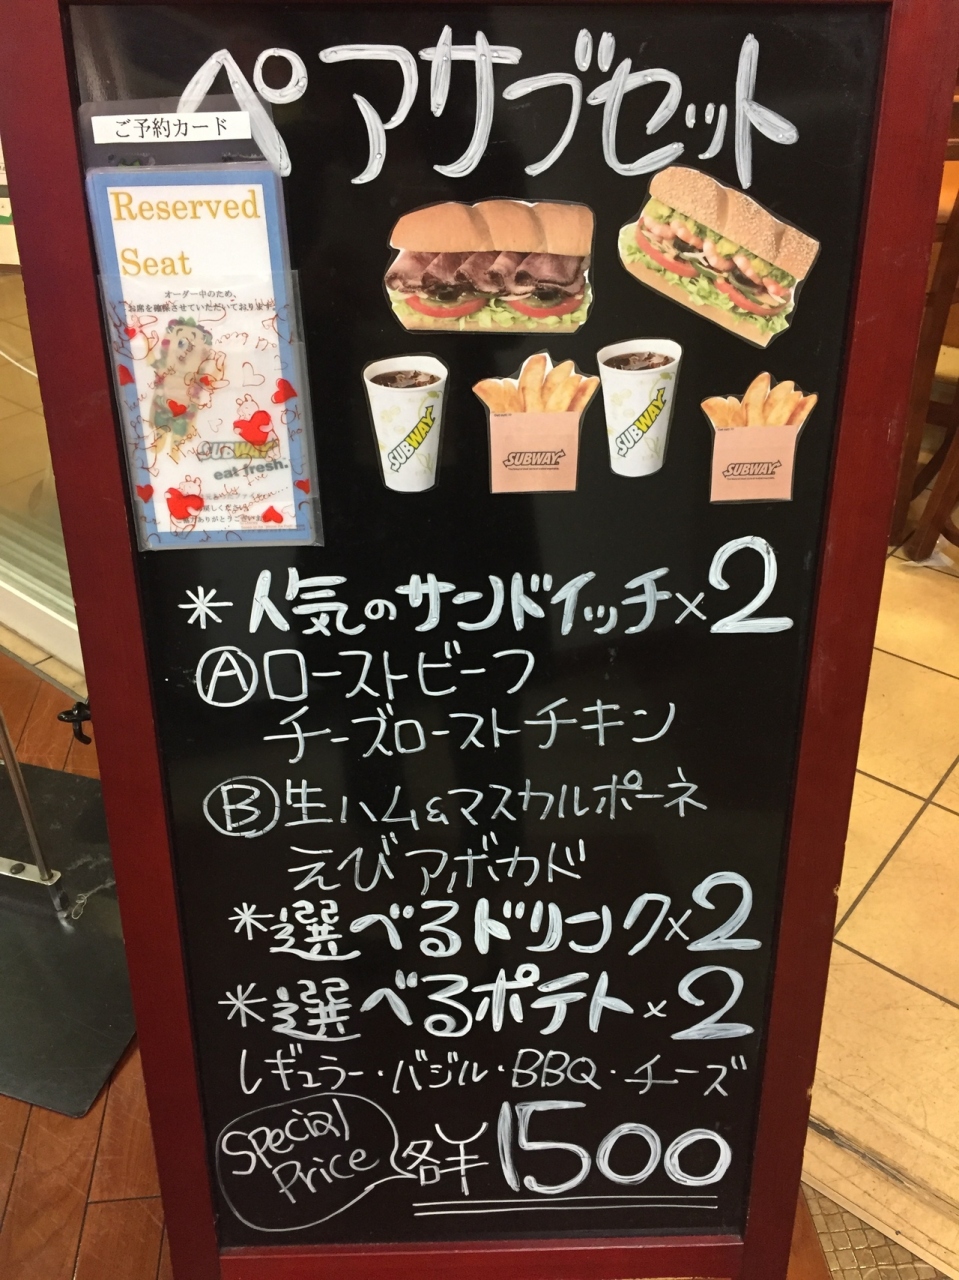 ペアサブセット
ご予約カード
Reserved
Seat
オーダー中のため、
お席を確保させていただいております。
SUBWAY
eat fresh.
SUBWAY
SUBWAY
SUBWAY
SUBWAY
*人気のサンドイッチ×2
Ⓐローストビーフ
チーズローストチキン
Ⓑ生ハム&マスカルポーネ
えびアボカド
*選べるドリンク×2
*選べるポテト×2
レギュラー・バジル・BBQ・チーズ
Special
Price
各¥1500